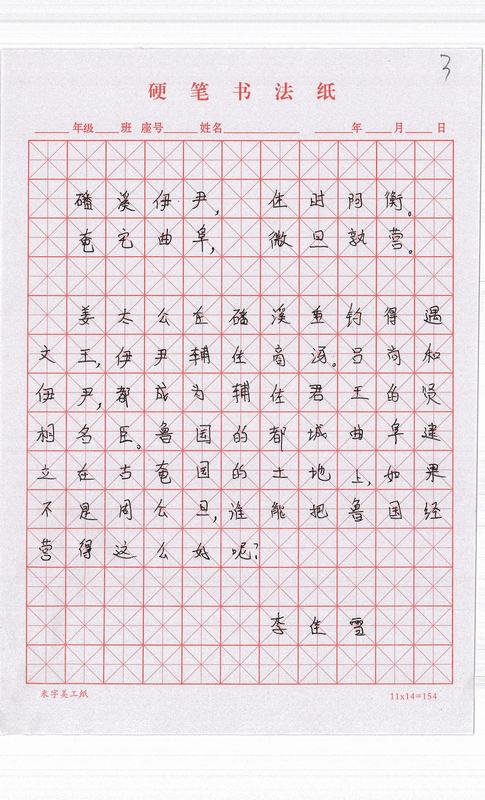 3
硬笔书法纸
年级 班 座号 姓名 年 月 日
磻溪伊尹，佐时阿衡。
奄宅曲阜，微旦孰营。
姜太公在磻溪垂钓得遇
文王，伊尹辅佐商汤。吕尚和
伊尹，都成为辅佐君王的贤
相名臣。鲁国的都城曲阜建
立在古奄国的土地上，如果
不是周公旦，谁能把鲁国经
营得这么好呢？
李佳雪
米字美工纸 11x14=154